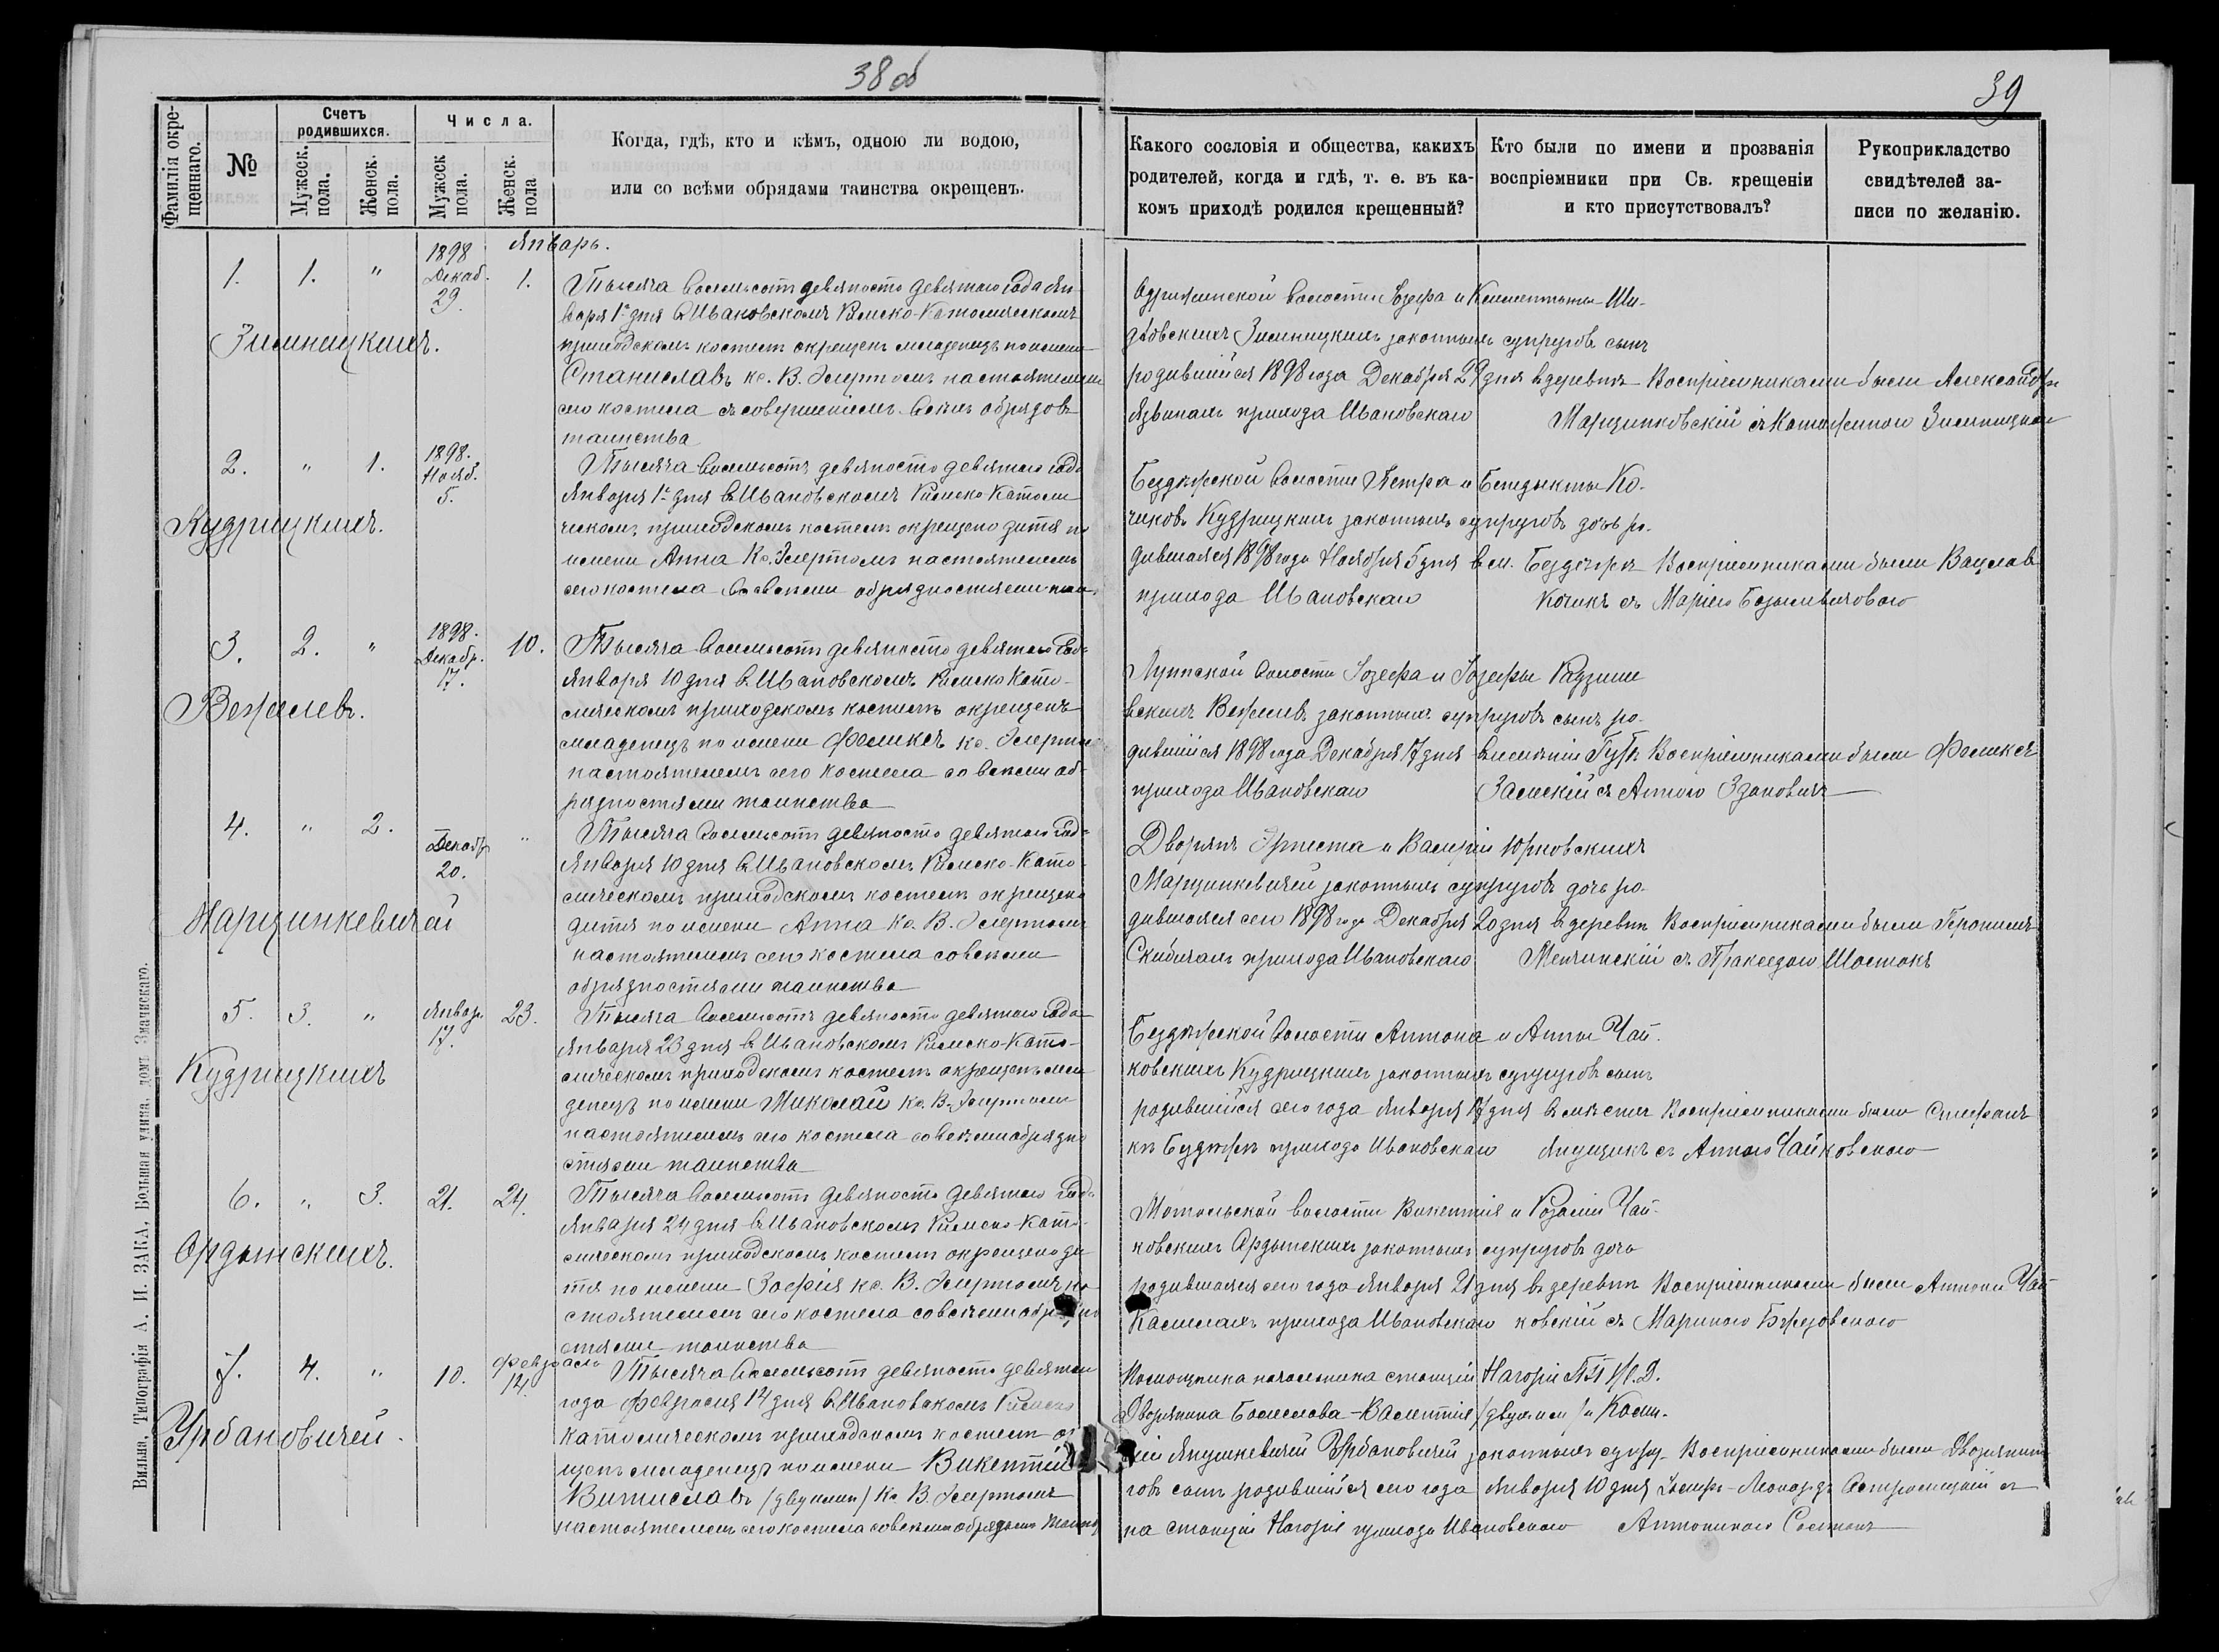 38 об
39
Фамилія окре-
щеннаго.
№
Счетъ
родившихся.
Мужеск.
пола.
Женск.
пола.
Числа.
Мужеск
пола.
Женск.
пола
Когда, гдѣ, кто и кѣмъ, одною ли водою,
или со всѣми обрядами таинства окрещенъ.
Какого сословія и общества, какихъ
родителей, когда и гдѣ, т. е. въ ка-
комъ приходѣ родился крещенный?
Кто были по имени и прозванія
воспріемники при Св. крещеніи
и кто присутствовалъ?
Рукоприкладство
свидѣтелей за-
писи по желанію.
Январь.
1. 1. " 1898 Декаб. 29. 1.
Зимницкихъ.
Тысяча восемьсотъ девяносто девятаго года Ян-
варя 1го дня въ Ивановскомъ Римско-Католическомъ
приходскомъ костелѣ окрещенъ младенецъ по имени
Станиславъ кс. В. настоятелемъ
сего костела съ совершеніемъ всѣхъ обрядовъ
таинства
волости Іозефа и Клементины Ши-
Зимницкихъ законныхъ супруговъ сынъ
родившійся 1898 года Декабря 29 дня въ деревнѣ
прихода Ивановскаго
Воспріемниками были Александръ
Марцинковскій съ Зимницкою
2. " 1. 1898. Нояб. 5.
Кудрицкихъ.
Тысяча восемьсотъ девяносто девятаго года
Января 1го дня въ Ивановскомъ Римско Католи
ческомъ приходскомъ костелѣ окрещено дитя по
имени Анна Кс. настоятелемъ
сего костела со всѣми обрядностями таин.
Бездѣжской волости Петра и Бенедыкты Ко-
чиковъ Кудрицкихъ законныхъ супруговъ дочь ро-
дившаяся 1898 года Ноября 5 дня в м. Бездежѣ
прихода Ивановскаго
Воспріемниками были Вацлавъ
Кочикъ съ Маріею
3. 2. " 1898. Декабр. 17. 10.
Вежелевъ.
Тысяча восемьсотъ девяносто девятаго года
Января 10 дня въ Ивановскомъ Римско Като-
лическомъ приходскомъ костелѣ окрещенъ
младенецъ по имени Феликсъ кс.
настоятелемъ сего костела со всѣми об-
рядностями таинства
волости Іозефа и Іозефы
законныхъ супруговъ сынъ ро-
дившійся 1898 года Декабря 17 дня въ имѣніи
прихода Ивановскаго
Воспріемниками были Феликсъ
Залескій съ Анною Здановичъ
4. " 2. Декабр 20. "
Марцинкевичей
Тысяча восемьсотъ девяносто девятаго года
Января 10 дня въ Ивановскомъ Римско-Като-
лическомъ приходскомъ костелѣ окрещено
дитя по имени Анна кс. В.
настоятелемъ сего костела со всѣми
обрядностями таинства
Дворянъ Эрнеста и Валеріи Юрковскихъ
Марцинкевичей законныхъ супруговъ дочь ро-
дившаяся сего 1898 года Декабря 20 дня въ деревнѣ
прихода Ивановскаго
Воспріемниками были Геронимъ
съ Пракседою Шостокъ
5. 3. " Январ. 17. 23.
Кудрицкихъ
Тысяча восемьсотъ девяносто девятаго года
Января 23 дня въ Ивановскомъ Римско-Като-
лическомъ приходскомъ костелѣ окрещенъ мла
денецъ по имени Миколай кс. В.
настоятелемъ сего костела со всѣми обрядно
стями таинства
Бездѣжской волости Антона и Анны Чай-
ковскихъ Кудрицкихъ законныхъ супруговъ сынъ
родившійся сего года Января 17 дня въ мѣстеч
кѣ прихода Ивановскаго
Воспріемниками были Стефанъ
съ Анною Чайковскою
6. " 3. 21. 24.
Ордынскихъ.
Тысяча восемьсотъ девяносто девятаго года
Января 24 дня въ Ивановскомъ Римско-Като-
лическомъ приходскомъ костелѣ окрещено ди
тя по имени Зофія кс. В. на
стоятелемъ сего костела со всѣми обрядно
стями таинства
Мотольской волости Викентія и Розаліи Чай-
ковскихъ Ордынскихъ законныхъ супруговъ дочь
родившаяся сего года Января 21 дня въ деревнѣ
прихода Ивановскаго
Воспріемниками были Антоній Чай-
ковскій съ
7. 4. " 10. Февраль 14.
Урбановичей.
Тысяча восемьсотъ девяносто девятаго
года Февраля 14 дня въ Ивановскомъ Римско
католическомъ приходскомъ костелѣ ок
щенъ младенецъ по имени Викентій
Витиславъ (двуимен) Кс. В.
настоятелемъ сего костела со всѣми обрядами таинс
Помощника начальника станціи
Дворянина Болеслава-Валентія (двуимен) и
Янушкевичей Урбановичей законныхъ супру-
говъ сынъ родившійся сего года Января 10 дня
на станціи прихода Ивановскаго
Воспріемниками были Дворянинъ
съ
Вильна, Типографія А. И. ЗАКА, Большая улица, домъ Змачинскаго.